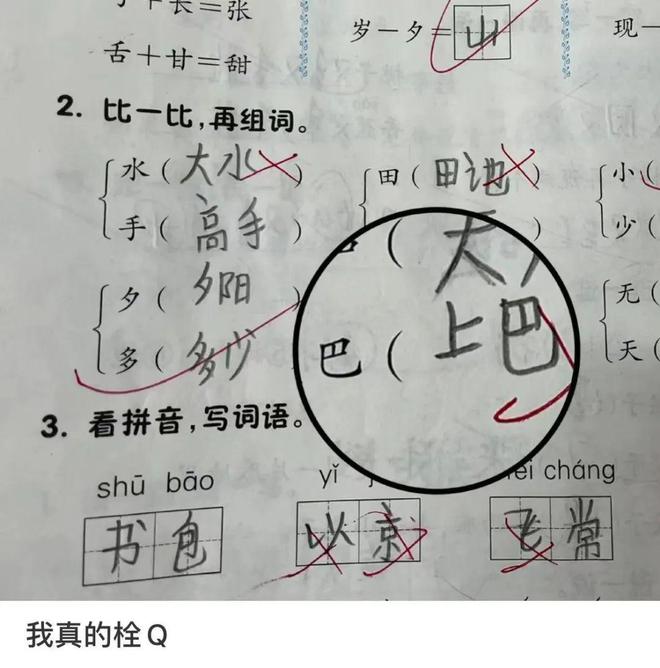 子＋长＝张
岁－夕＝山
现－
舌＋甘＝甜
2. 比一比，再组词。
水（大水） 田（田地） 小（
手（高手）
少（
夕（夕阳） 无（
巴（上巴
多（多少 天（
3. 看拼音，写词语。
shū bāo yǐ fēi cháng
书包 以京 飞常
我真的栓Q